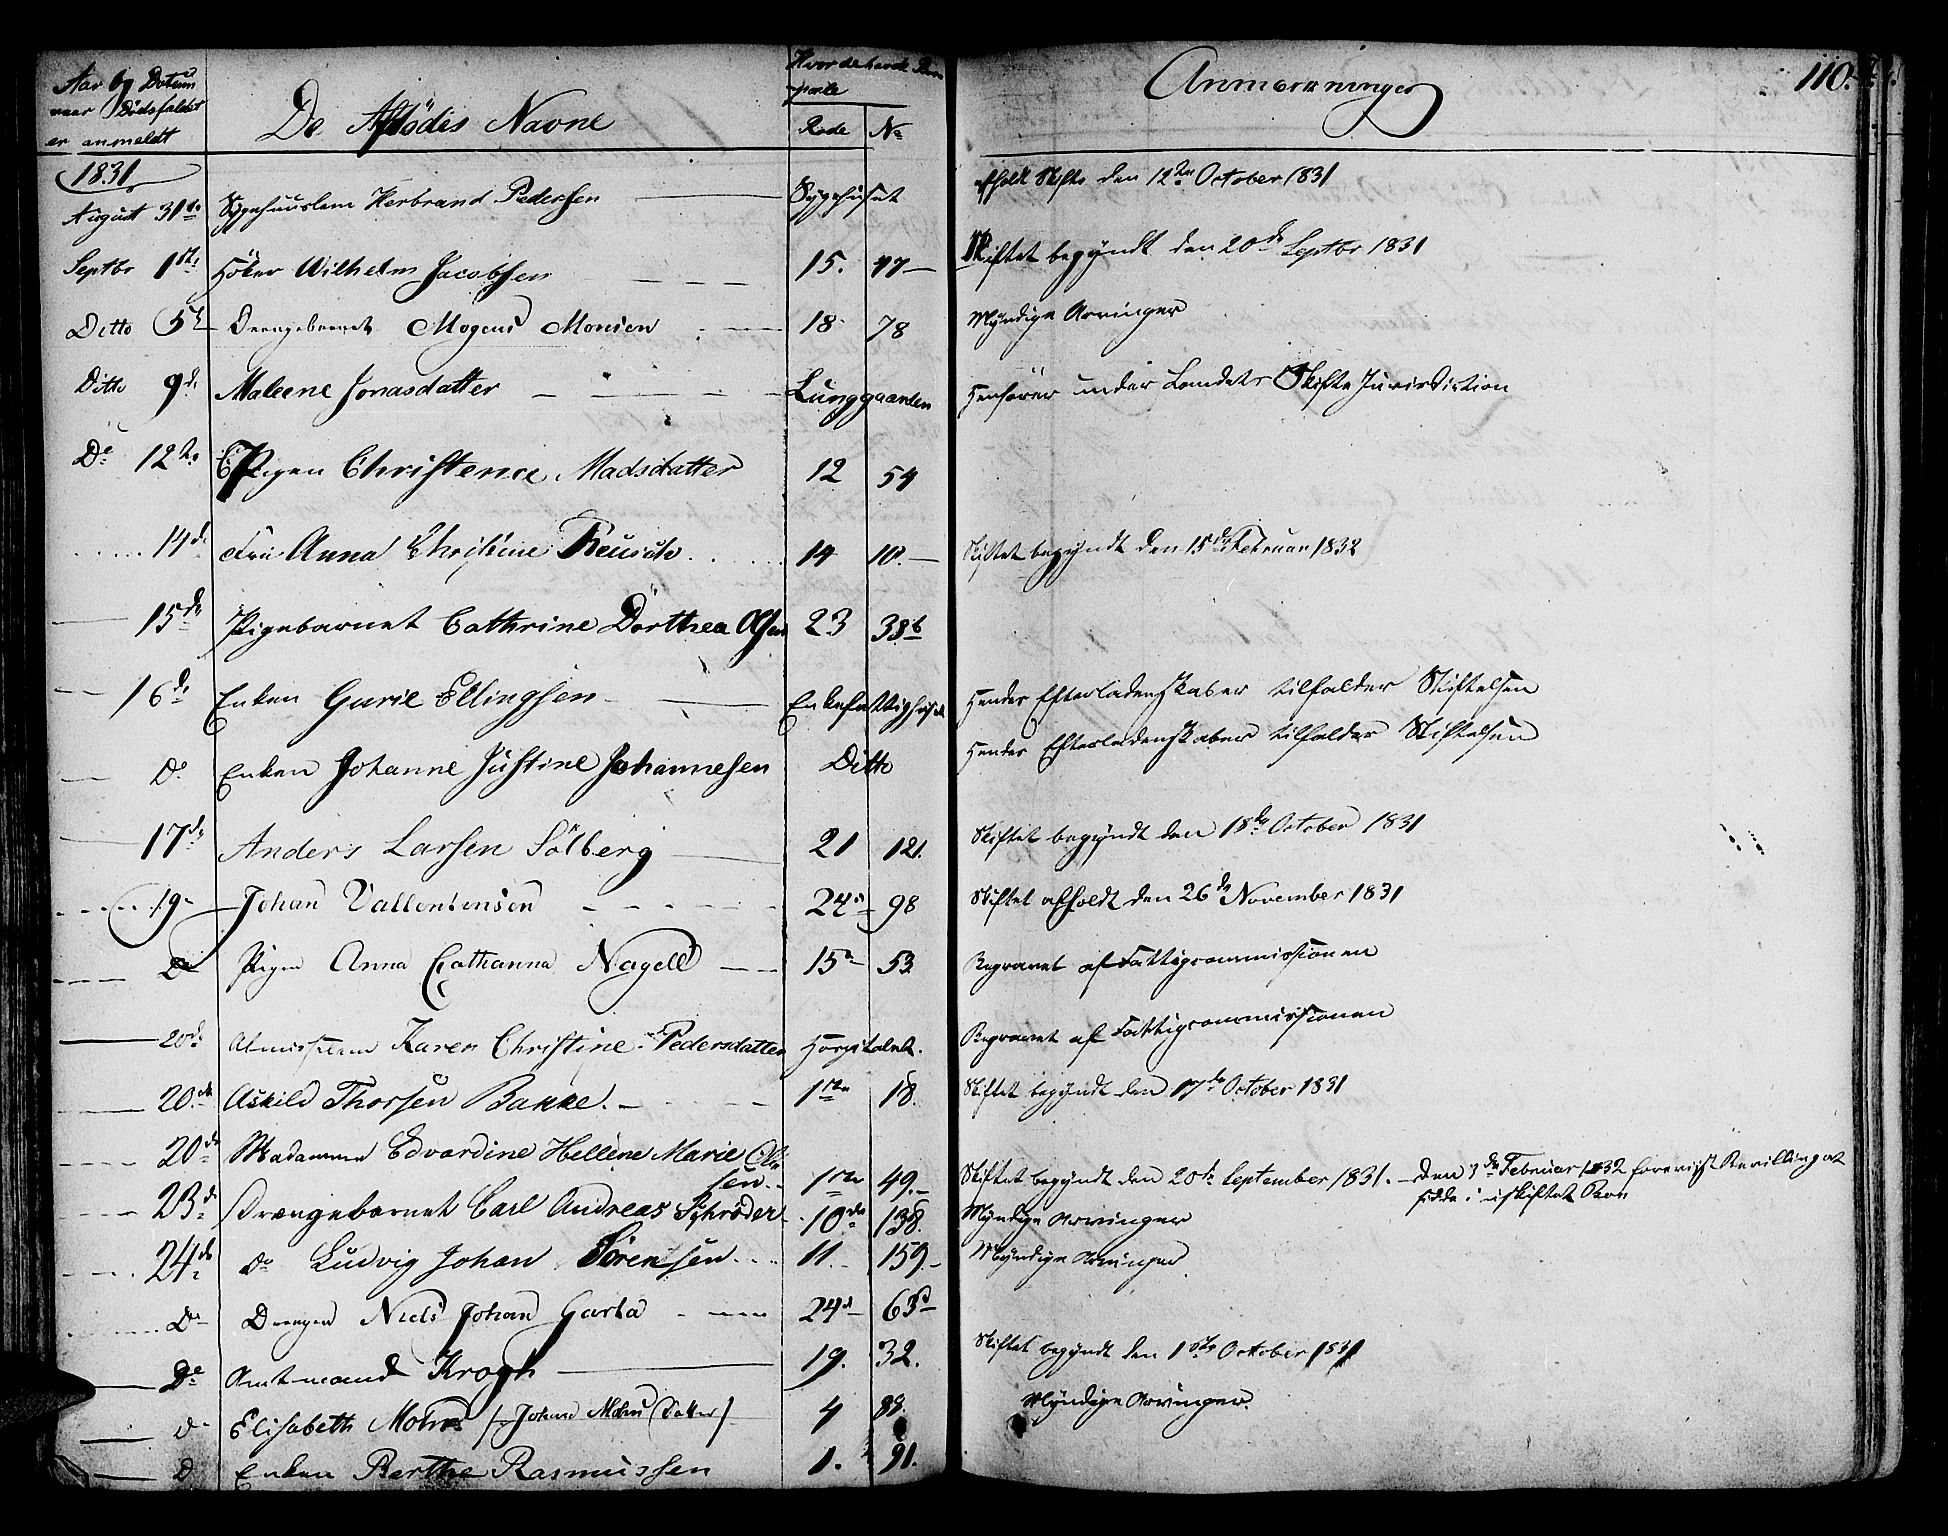 Aar og Datum
naar Dödsfaldet
er anmeldt
De Afdödes Navne
Hvor de havde Bo-
pæle
Rode No
Anmærkninger
110.
1831
August 31te Sygehuuslem Herbrand Pedersen Sygehuset afholdt Skifte den 12te October 1831
Septbr 1ste Höker Wilhelm Jacobsen 15. 47 Skiftet begyndt den 20de Septbr 1831
Ditto 5te Drengebarnet Mogens Monsen 18 78 Myndige Arvinger
Ditto 9de Maleene Jonasdatter Lunggaarden Henhører under Landets Skifte Jurisdiction
Do 12te Pigen Christence Madsdatter 12 54
14de Fru Anna Christine 14 10. Skiftet begyndt den 15de Februar 1832
15de Pigebarnet Cathrine Dorthea Olsen 23 38b
16de Enken Gurie Ellingsen Enkefattighuset Hendes Efterladenskaber tilfalder Stiftelsen
Do Enken Johanne Justine Johannesen Ditto Hendes Efterladenskaber tilfalder Stiftelsen
17de Anders Larsen Sölberg 21 121. Skiftet begyndt den 18de October 1831
19 Johan Vallentinsen 24d 98 Skiftet afholdt den 26de November 1831
Do Pigen Anna Cathanna Nagell 15 53. Begravet af Fattigcommissionen
20de Almisselem Karen Christine Pedersdatter Hospitalet. Begravet af Fattigcommissionen
20de Askild Thorsen Bakke. 1ste 18. Skiftet begyndt den 17de October 1831
20de Madamme Edvardine Hellene Marie Ol-
sen 1ste 49. Skiftet begyndt den 20de September 1831. Den 7de Februar 1832 foreviist Bevilling at
sidde i uskiftet Boe
23de Drengebarnet Carl Andreas Schröder 10de 138. Myndige Arvinger
24de do Ludvig Johan Sörensen 11. 159. Myndige Arvinger
Do Drengen Niels Johan Garta 24d 63d
Do Amtmand Krogh 19. 32. Skiftet begyndt den 1ste October 1831
do Elisabeth Mohn /Johan Mohns Datter/ 4 88. Myndige Arvinger.
do Enken Berthe Rasmussen 1. 91.